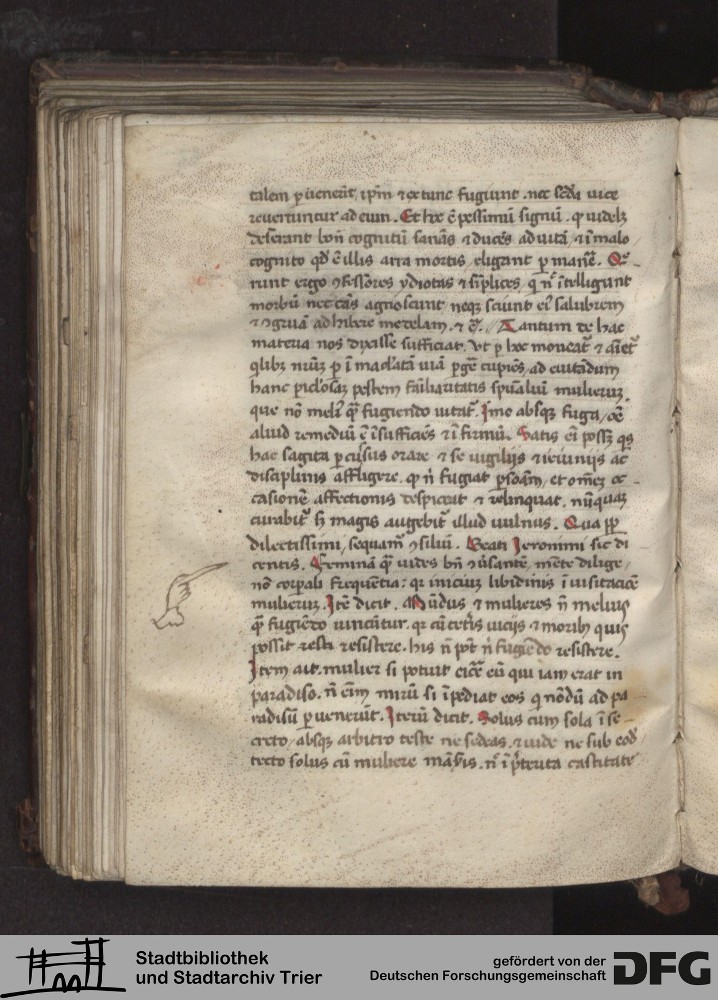 talem p uenerūt, ipm̄ & ex tunc fugiunt. nec sc̄da uice
reuertuntur ad eum. Et hec ē pessimū signū. qͥ videlꝫ
deserant bonū cognitū & ducēs ad uitā, & ī malo
cognito qd̄ ē illis arra mortis eligant
runt ergo ꝯfessores ydiotas & simplices, q n̄ ītelligunt
morbū nec cās agnoscunt neqꝫ sciunt ei salubrem
& ꝯgruā adhibere medelam. & c̄. Tantum de hac
materia nos dixisse sufficiat. Vt p hec moneat
ad ciuitādum
hanc piclosaꝫ pestem familiaritatis spūaliū mulierum.
que nō meli fugiendo uitat. Imo absqꝫ fuga, cē
aliud remediū ē īsufficiēs & īfirmū. Satis ei possꝫ qs
hac sagita pcussus orare & se vigilijs & ieiunijs ac
disciplinis affligere. qͥ n̄ fugiat psoām, et om̄eꝫ oc-
casionē affectionis despiciat & relinquat. nūquaꝫ
curabit sꝫ magis augebit illud uulnus. Qua pp
dilectissimi, sequam ꝯsiliū. Beati Jeronimi sic di
centis. Feminā quā vides bn̄ ꝯūsantē, mēte dilige,
nō corpali frequētia: qr iniciū libidinis ī uisitacōe
mulierum. Itē dicit. Mūdus & mulieres n̄ melius
quā fugiēdo uincūtur. qr cū cetis uicijs & moribꝫ quis
possit resistere. his n̄ pōt n̄ fugiēdo resistere.
Item ait. mulier si potuit eicē eū qui iam erat in
paradiso. n̄ eīm mirū si īpediat eos q nōdū ad pa
radisū puenerūt. Iterū dicit. Solus cum sola ī se-
creto, absqꝫ arbitro teste ne sedeas. & uide ne sub eod
tecto solus cū muliere māsis. n̄ ī pterita castitate
Stadtbibliothek
und Stadtarchiv Trier
gefördert von der
Deutschen Forschungsgemeinschaft
DFG